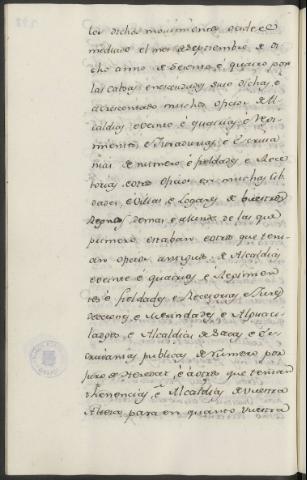 los dichos movimientos desde el
mediado el mes de Septiembre de di
cho anno de sesenta e quatro por
las cabsas e susodichas e
acrescentado muchos oficios de Al
caldias e veinte e quatrias e Regi
mientos e Juradurias e Escriva
nias de numero e fieldades e Rece
torias e otros oficios en muchas Cib
dades, e Villas e Logares de vuestros
Regnos demas e allende de las que
primero estaban e otros que tení
an oficios antiguos de Alcaldias
e veinte e quatrias e Regimien
tos e fieldades e Recetorias e Jura
e Merindades e Alguaci
lazgos e Alcaldias de Sacas e Es
cribanias publicas de Numero por
juro de heredat, e a otros que tenian
thenencias e Alcaldias de vuestra
Alteza para en quanto vuestra